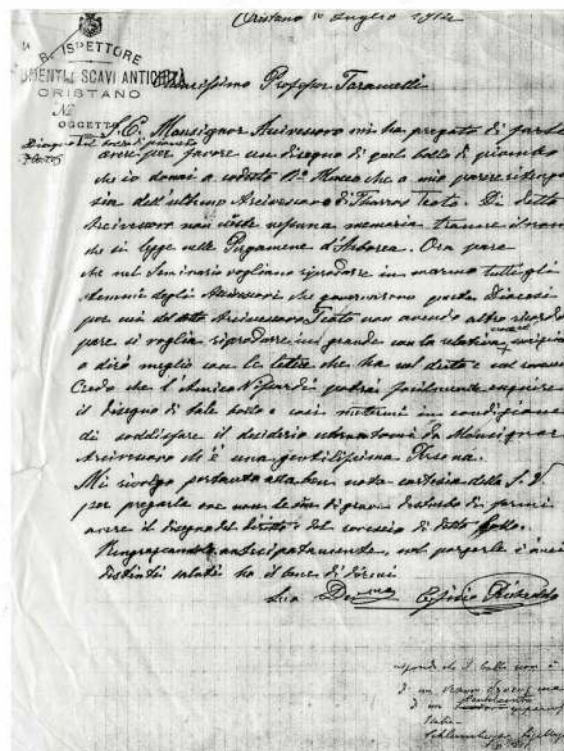 Oristano 10 Luglio 1912
R. ISPETTORE
SCAVI ANTICHITÀ
ORISTANO
No
OGGETTO
Disegno del bollo di piombo
Chiarissimo Professor Taramelli
S. E. Monsignor Arcivescovo mi ha pregato di farle
avere per favore un disegno di quel bollo di piombo
che io donai a codesto Ro Museo che a mio parere ritengo
sia dell'ultimo Arcivescovo di Tharros Teoto. Di detto
Arcivescovo non esiste nessuna memoria tranne il nome
che si legge nelle Pergamene d'Arborea. Ora pare
che nel Seminario vogliano riprodurre in marmo tutti gli
stemmi degli Arcivescovi che governarono questa Diocesi
per cui del detto Arcivescovo Teoto non avendo altro ricordo
pare si voglia riprodurre in grande con la relativa
o dirò meglio con le lettere che ha nel diritto e nel
Credo che l'Amico Nissardi potrà facilmente eseguire
il disegno di tale bollo e così mettermi in condizione
di soddisfare il desiderio da Monsignor
Arcivescovo che è una gentilissima Persona.
Mi rivolgo pertanto alla ben nota cortesia della S. V.
per pregarla ove non le sia di grave disturbo di farmi
avere il disegno del diritto e del rovescio di detto bollo.
Ringraziandola anticipatamente, nel porgerle i miei
distinti saluti ho il bene di dirmi
Suo Dev.mo Efisio Pischedda
risponde che il bollo non è
di un ma
di un